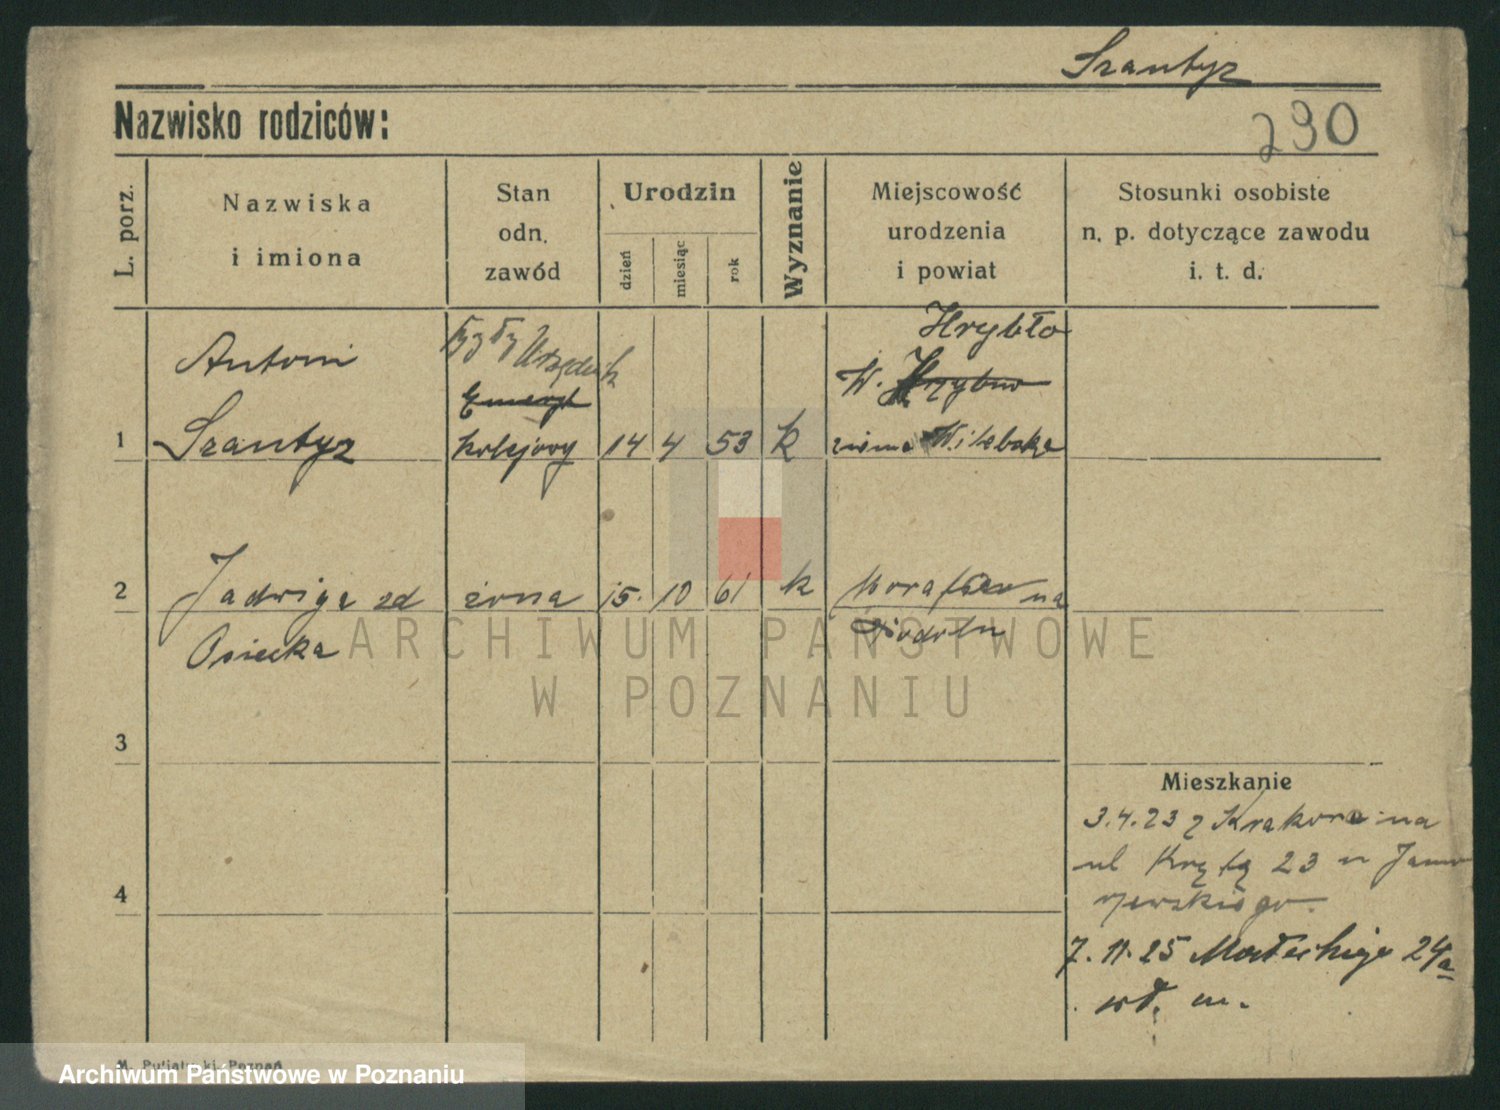 Szantyr
Nazwisko rodziców:
290
L. porz.
Nazwiska
i imiona
Stan
odn.
zawód
Urodzin
dzień
miesiąc
rok
Wyznanie
Miejscowość
urodzenia
i powiat
Stosunki osobiste
n. p. dotyczące zawodu
i. t. d.
1
Antoni
Szantyr
były Urzędnik
Emeryt
kolejowy
14 4 53 k
Hrybło
W.
ziemia Witebska
2
Jadwiga zd
Osiecka
żona
15. 10 61 k
na
Podolu
3
4
Mieszkanie
3.4.23 z Krakowa na
ul Krętą 23 u
7. 11. 25 Małeckiego 24a
wł. m.
M. Putiatycki, Poznań
ARCHIWUM PAŃSTWOWE
W POZNANIU
Archiwum Państwowe w Poznaniu